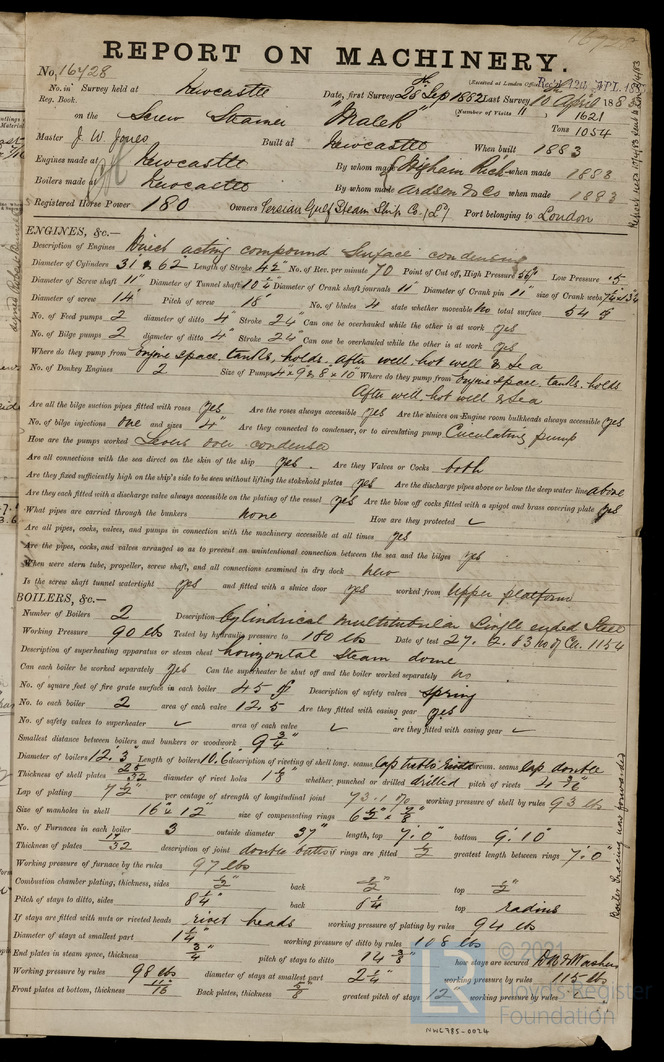 REPORT ON MACHINERY.
No. 16428
(Received at London Office
No. in Survey held at Newcastle Date, first Survey 25th Sep 1882 Last Survey 10 April 1883
Reg. Book. (Number of Visits 11)
on the Screw Steamer "Malek" Tons 1621
1054
Master J. W. Jones Built at Newcastle When built 1883
Engines made at Newcastle By whom made Wigham Rich when made 1883
Boilers made at Newcastle By whom made & Co when made 1883
Registered Horse Power 180 Owners Persian Gulf Steam Ship Co. (Ld) Port belonging to London
ENGINES, &c.—
Description of Engines Direct acting compound Surface condensing
Diameter of Cylinders 31 & 62" Length of Stroke 42" No. of Rev. per minute 70 Point of Cut off, High Pressure Low Pressure .5
Diameter of Screw shaft 11" Diameter of Tunnel shaft 10 Diameter of Crank shaft journals 11" Diameter of Crank pin 11" size of Crank webs
Diameter of screw 14' Pitch of screw 18' No. of blades 4 state whether moveable no total surface 54
No. of Feed pumps 2 diameter of ditto 4" Stroke 24" Can one be overhauled while the other is at work yes
No. of Bilge pumps 2 diameter of ditto 4" Stroke 24" Can one be overhauled while the other is at work yes
Where do they pump from Engine space, tanks, holds, After well, hot well & Sea
No. of Donkey Engines 2 Size of Pumps 4" x 9" & 8 x 10" Where do they pump from Engine space, tanks, holds
After well, hot well & Sea
Are all the bilge suction pipes fitted with roses yes Are the roses always accessible yes Are the sluices on Engine room bulkheads always accessible yes
No. of bilge injections one and sizes 4" Are they connected to condenser, or to circulating pump Circulating pump
How are the pumps worked Levers over condenser
Are all connections with the sea direct on the skin of the ship yes. Are they Valves or Cocks both
Are they fixed sufficiently high on the ship's side to be seen without lifting the stokehold plates yes Are the discharge pipes above or below the deep water line above
Are they each fitted with a discharge valve always accessible on the plating of the vessel yes Are the blow off cocks fitted with a spigot and brass covering plate yes
What pipes are carried through the bunkers none How are they protected ✓
Are all pipes, cocks, valves, and pumps in connection with the machinery accessible at all times yes
Are the pipes, cocks, and valves arranged so as to prevent an unintentional connection between the sea and the bilges yes
When were stern tube, propeller, screw shaft, and all connections examined in dry dock New
Is the screw shaft tunnel watertight yes and fitted with a sluice door yes worked from Upper platform
BOILERS, &c.—
Number of Boilers 2 Description Cylindrical multitubular Single ended Steel
Working Pressure 90 lbs Tested by hydraulic pressure to 180 lbs Date of test 27. 2. 83 No. of Ce. 1154
Description of superheating apparatus or steam chest horizontal Steam dome
Can each boiler be worked separately yes Can the superheater be shut off and the boiler worked separately no
No. of square feet of fire grate surface in each boiler 45 Description of safety valves Spring
No. to each boiler 2 area of each valve 12.5 Are they fitted with easing gear yes
No. of safety valves to superheater ✓ area of each valve ✓ are they fitted with easing gear ✓
Smallest distance between boilers and bunkers or woodwork 9 3/4"
Diameter of boilers 12' 3" Length of boilers 10.6 description of riveting of shell long. seams lap treble circum. seams lap double
Thickness of shell plates 25/32 diameter of rivet holes 1 1/8 whether punched or drilled drilled pitch of rivets
Lap of plating 7 1/2" per centage of strength of longitudinal joint 73.4 % working pressure of shell by rules 93 lbs
Size of manholes in shell 16" x 12" size of compensating rings 6 1/2" x 7/8"
No. of Furnaces in each boiler 3 outside diameter 37" length, top 7'.0" bottom 9'.10"
Thickness of plates 17/32 description of joint double butts if rings are fitted 1/2 greatest length between rings 7'.0"
Working pressure of furnace by the rules 97 lbs
Combustion chamber plating, thickness, sides 1/2" back 1/2" top 1/2"
Pitch of stays to ditto, sides 8 1/4" back 8 1/4" top radius
If stays are fitted with nuts or riveted heads rivet heads working pressure of plating by rules 94 lbs
Diameter of stays at smallest part 1 1/4" working pressure of ditto by rules 108 lbs
End plates in steam space, thickness 3/4" pitch of stays to ditto 14 3/8" how stays are secured D N & Washers
Working pressure by rules 98 lbs diameter of stays at smallest part 2 1/4" working pressure by rules 115 lbs
Front plates at bottom, thickness 11/16 Back plates, thickness 5/8 greatest pitch of stays 12" working pressure by rules
Boiler tracing now forwarded
© 2021
Lloyd's Register
Foundation
NWC785-0024